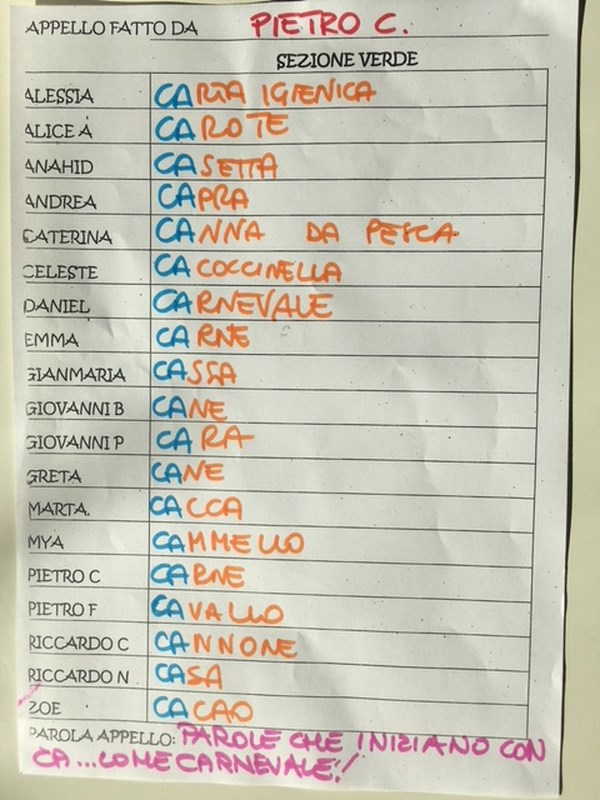 APPELLO FATTO DA PIETRO C.
SEZIONE VERDE
ALESSIA CARTA IGIENICA
ALICE A CAROTE
ANAHID CASETTA
ANDREA CAPRA
CATERINA CANNA DA PESCA
CELESTE CA COCCINELLA
DANIEL CARNEVALE
EMMA CARNE
GIANMARIA CASSA
GIOVANNI B CANE
GIOVANNI P CARA
GRETA CANE
MARTA. CACCA
MYA CAMMELLO
PIETRO C CARNE
PIETRO F CAVALLO
RICCARDO C CANNONE
RICCARDO N CASA
ZOE CACAO
PAROLA APPELLO: PAROLE CHE INIZIANO CON
CA...COME CARNEVALE!